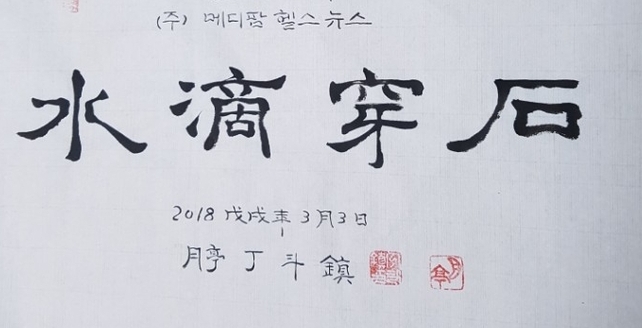 (주) 메디팜헬스뉴스
水滴穿石
2018 戊戌年 3月3日
月亭 丁斗鎭
月亭